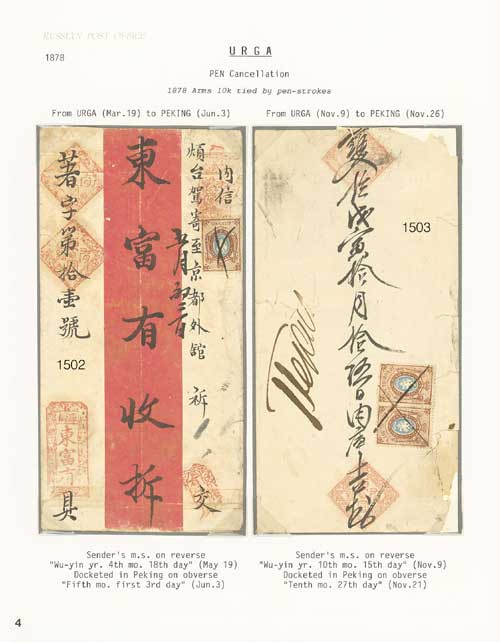 RUSSIAN POST OFFICE
1878
URGA
PEN Cancellation
1878 Arms 10k tied by pen-strokes
From URGA (Mar.19) to PEKING (Jun.3)
From URGA (Nov.9) to PEKING (Nov.26)
內信
煩台駕寄至京都外舘 祈 交
五月初三日
東富有收拆
著字第拾壹號
具
東富有
1502
1503
戊寅拾月拾伍日內店
Sender's m.s. on reverse
"Wu-yin yr. 4th mo. 18th day" (May 19)
Docketed in Peking on obverse
"Fifth mo. first 3rd day" (Jun.3)
Sender's m.s. on reverse
"Wu-yin yr. 10th mo. 15th day" (Nov.9)
Docketed in Peking on obverse
"Tenth mo. 27th day" (Nov.21)
4